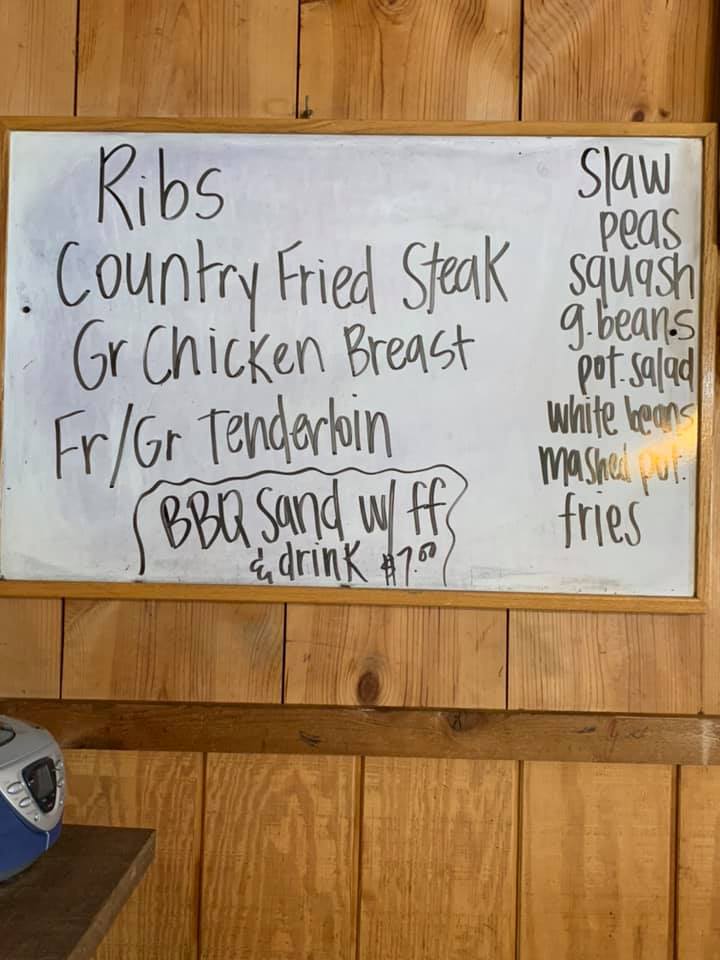 Ribs
Country Fried Steak
Gr Chicken Breast
Fr/Gr Tenderloin
BBQ Sand w/ ff
& drink $7.00
Slaw
peas
squash
g.beans
pot.salad
white beans
mashed pot.
fries